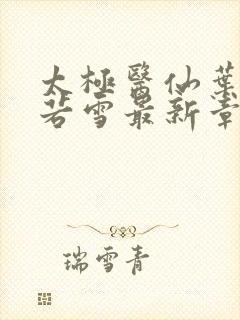 太極醫仙葉
若雪最新章
瑞雪青